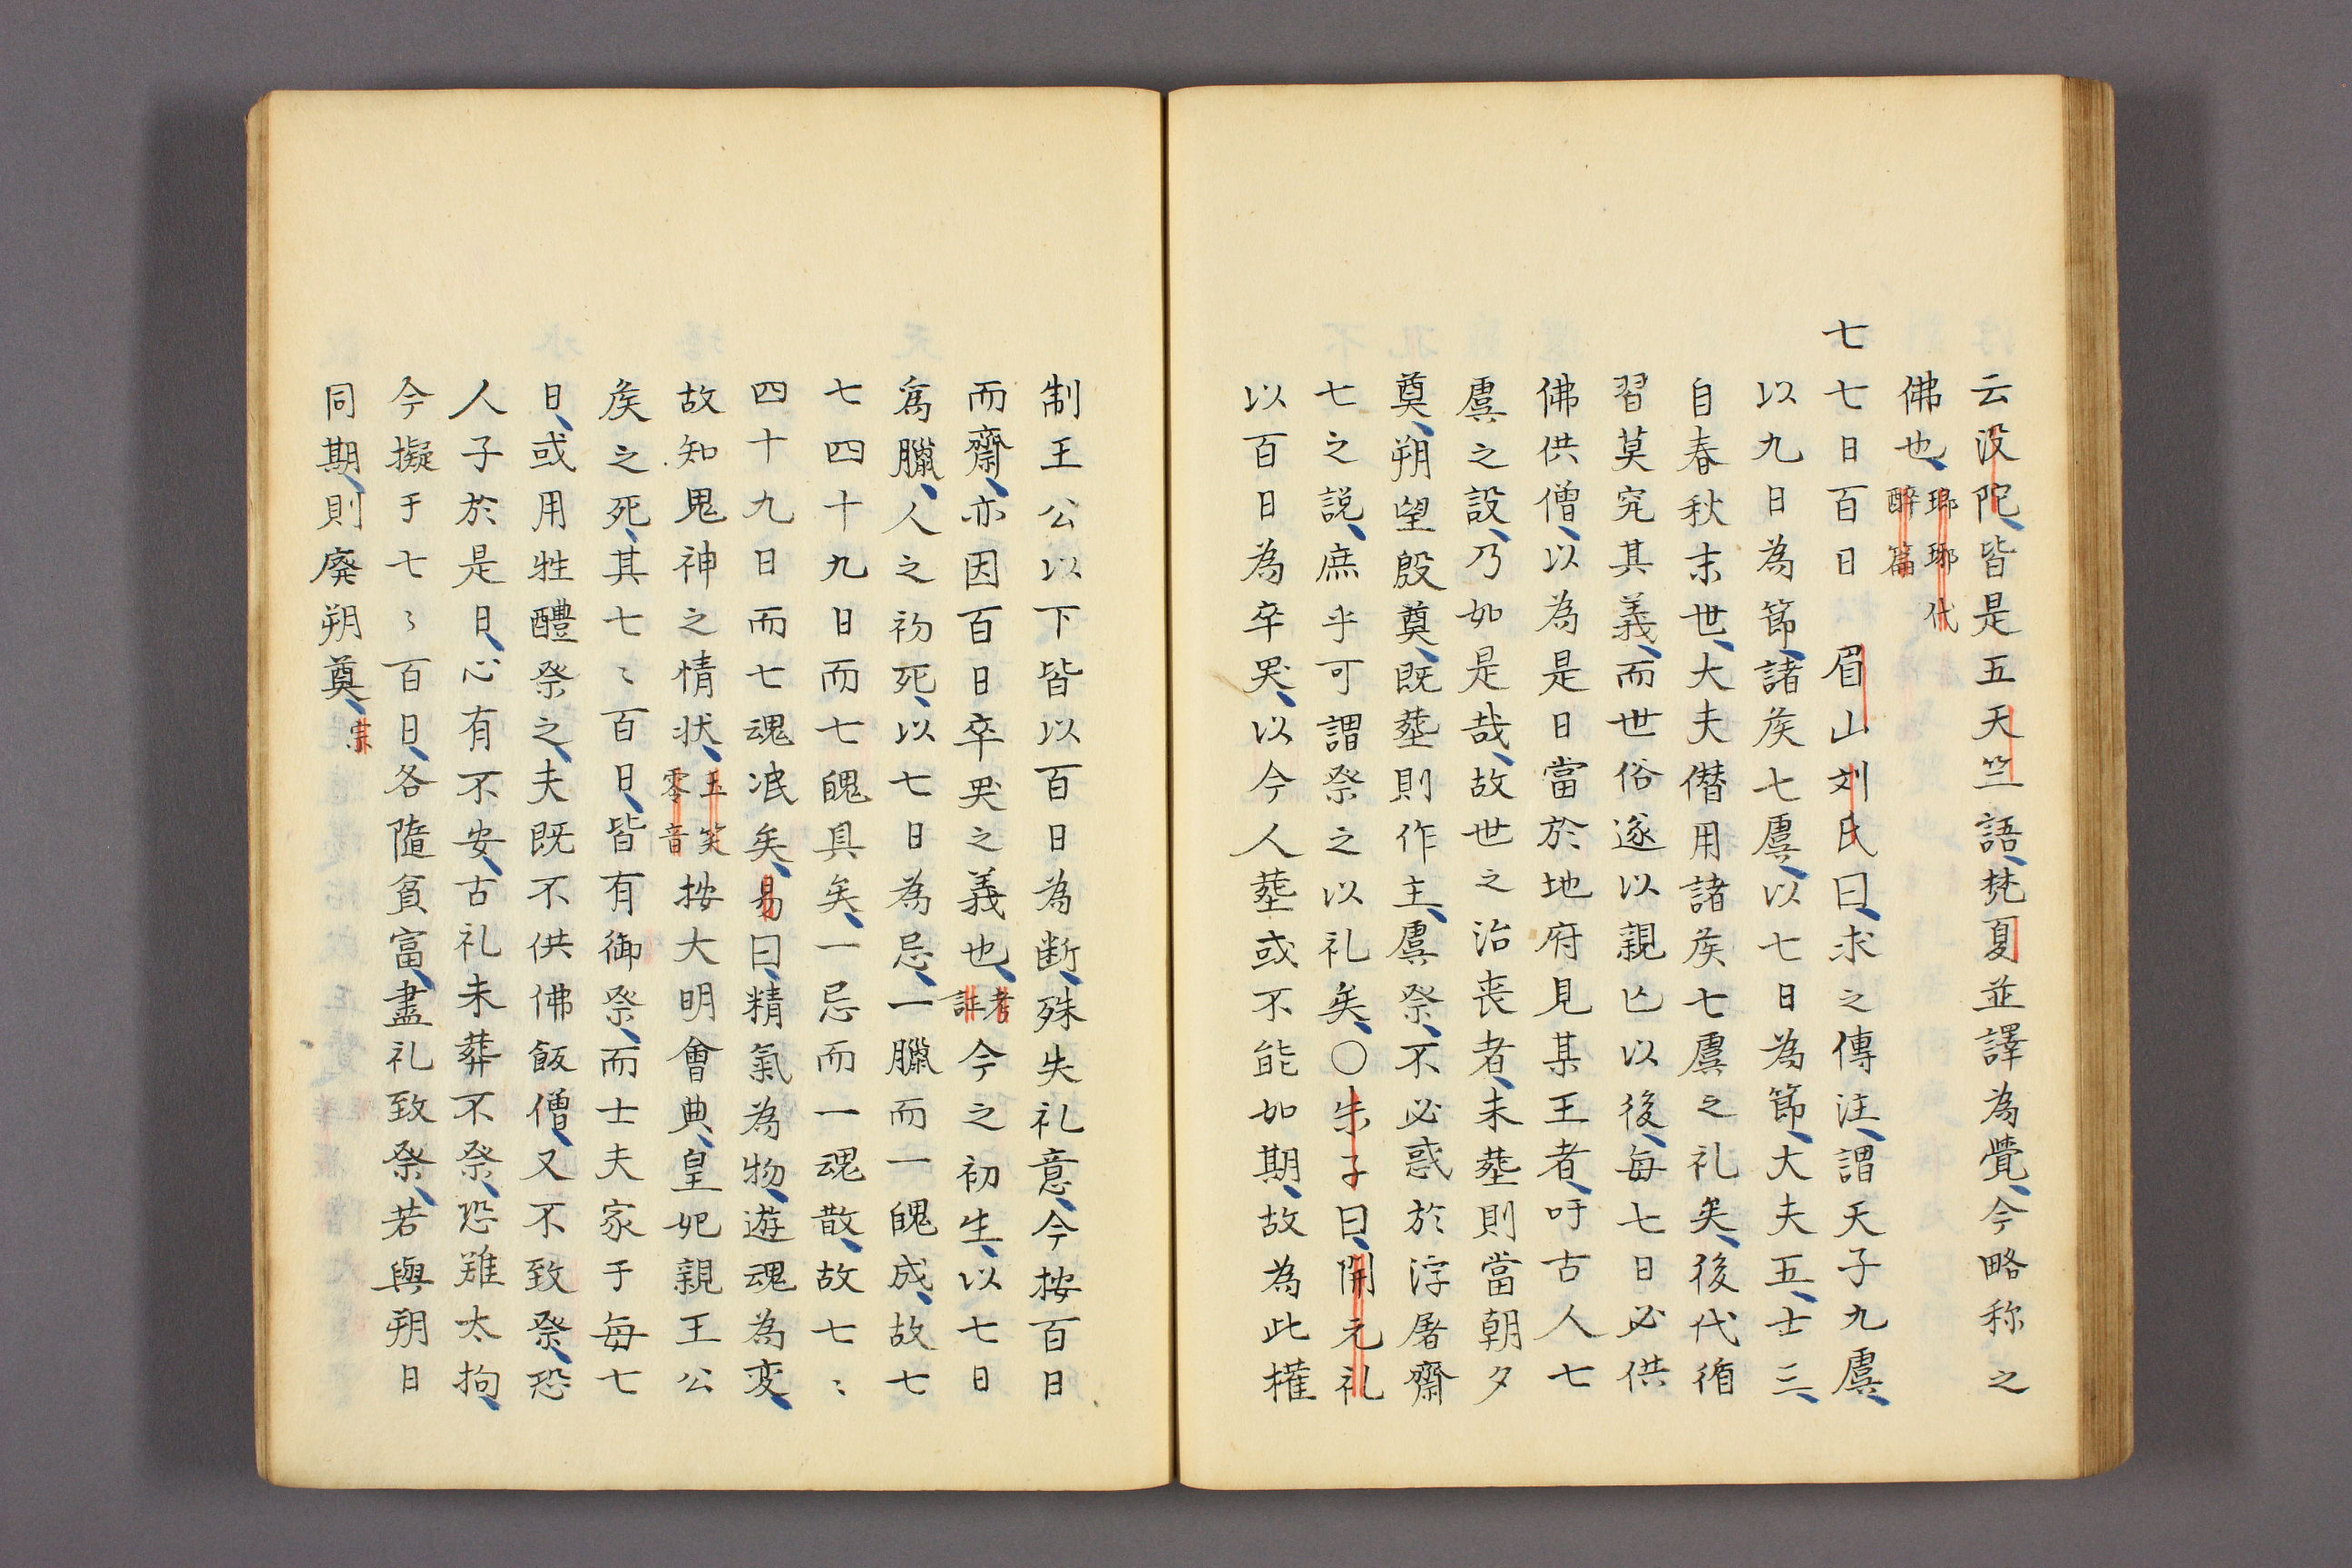 云没陀、皆是五天竺語、梵夏並譯為覺、今略称之
佛也、瑯琊代醉篇
七七日百日 眉山刘氏曰、求之傳注、謂天子九虞、
以九日為節、諸矦七虞、以七日為節、大夫五、士三、
自春秋末世、大夫僣用諸矦七虞之礼矣、後代循
習莫究其義、而世俗遂以親亡以後、每七日必供
佛供僧、以為是日當於地府見某王者、吁古人七
虞之設、乃如是哉、故世之治丧者、未塟則當朝夕
奠、朔望殷奠、既塟則作主、虞祭、不必惑於浮屠齋
七之説、庶乎可謂祭之以礼矣、〇朱子曰、開元礼
以百日為卒哭、以今人塟或不能如期、故為此權
制王公以下皆以百日為断、殊失礼意、今按百日
而齋、亦因百日卒哭之義也、考証今之初生、以七日
爲臘、人之初死、以七日為忌、一臘而一魄成、故七
七四十九日而七魄具矣、一忌而一魂散、故七〻
四十九日而七魂泯矣、易曰、精氣為物、遊魂為変、
故知鬼神之情状、玉笑零音按大明會典、皇妃親王公
矦之死、其七〻百日、皆有御祭、而士夫家于每七
日、或用牲醴祭之、夫既不供佛飯僧、又不致祭、恐
人子於是日、心有不安、古礼未葬不祭、恐難太拘、
今擬于七〻百日、各隨貧富、盡礼致祭、若與朔日
同期、則廃朔奠、宗